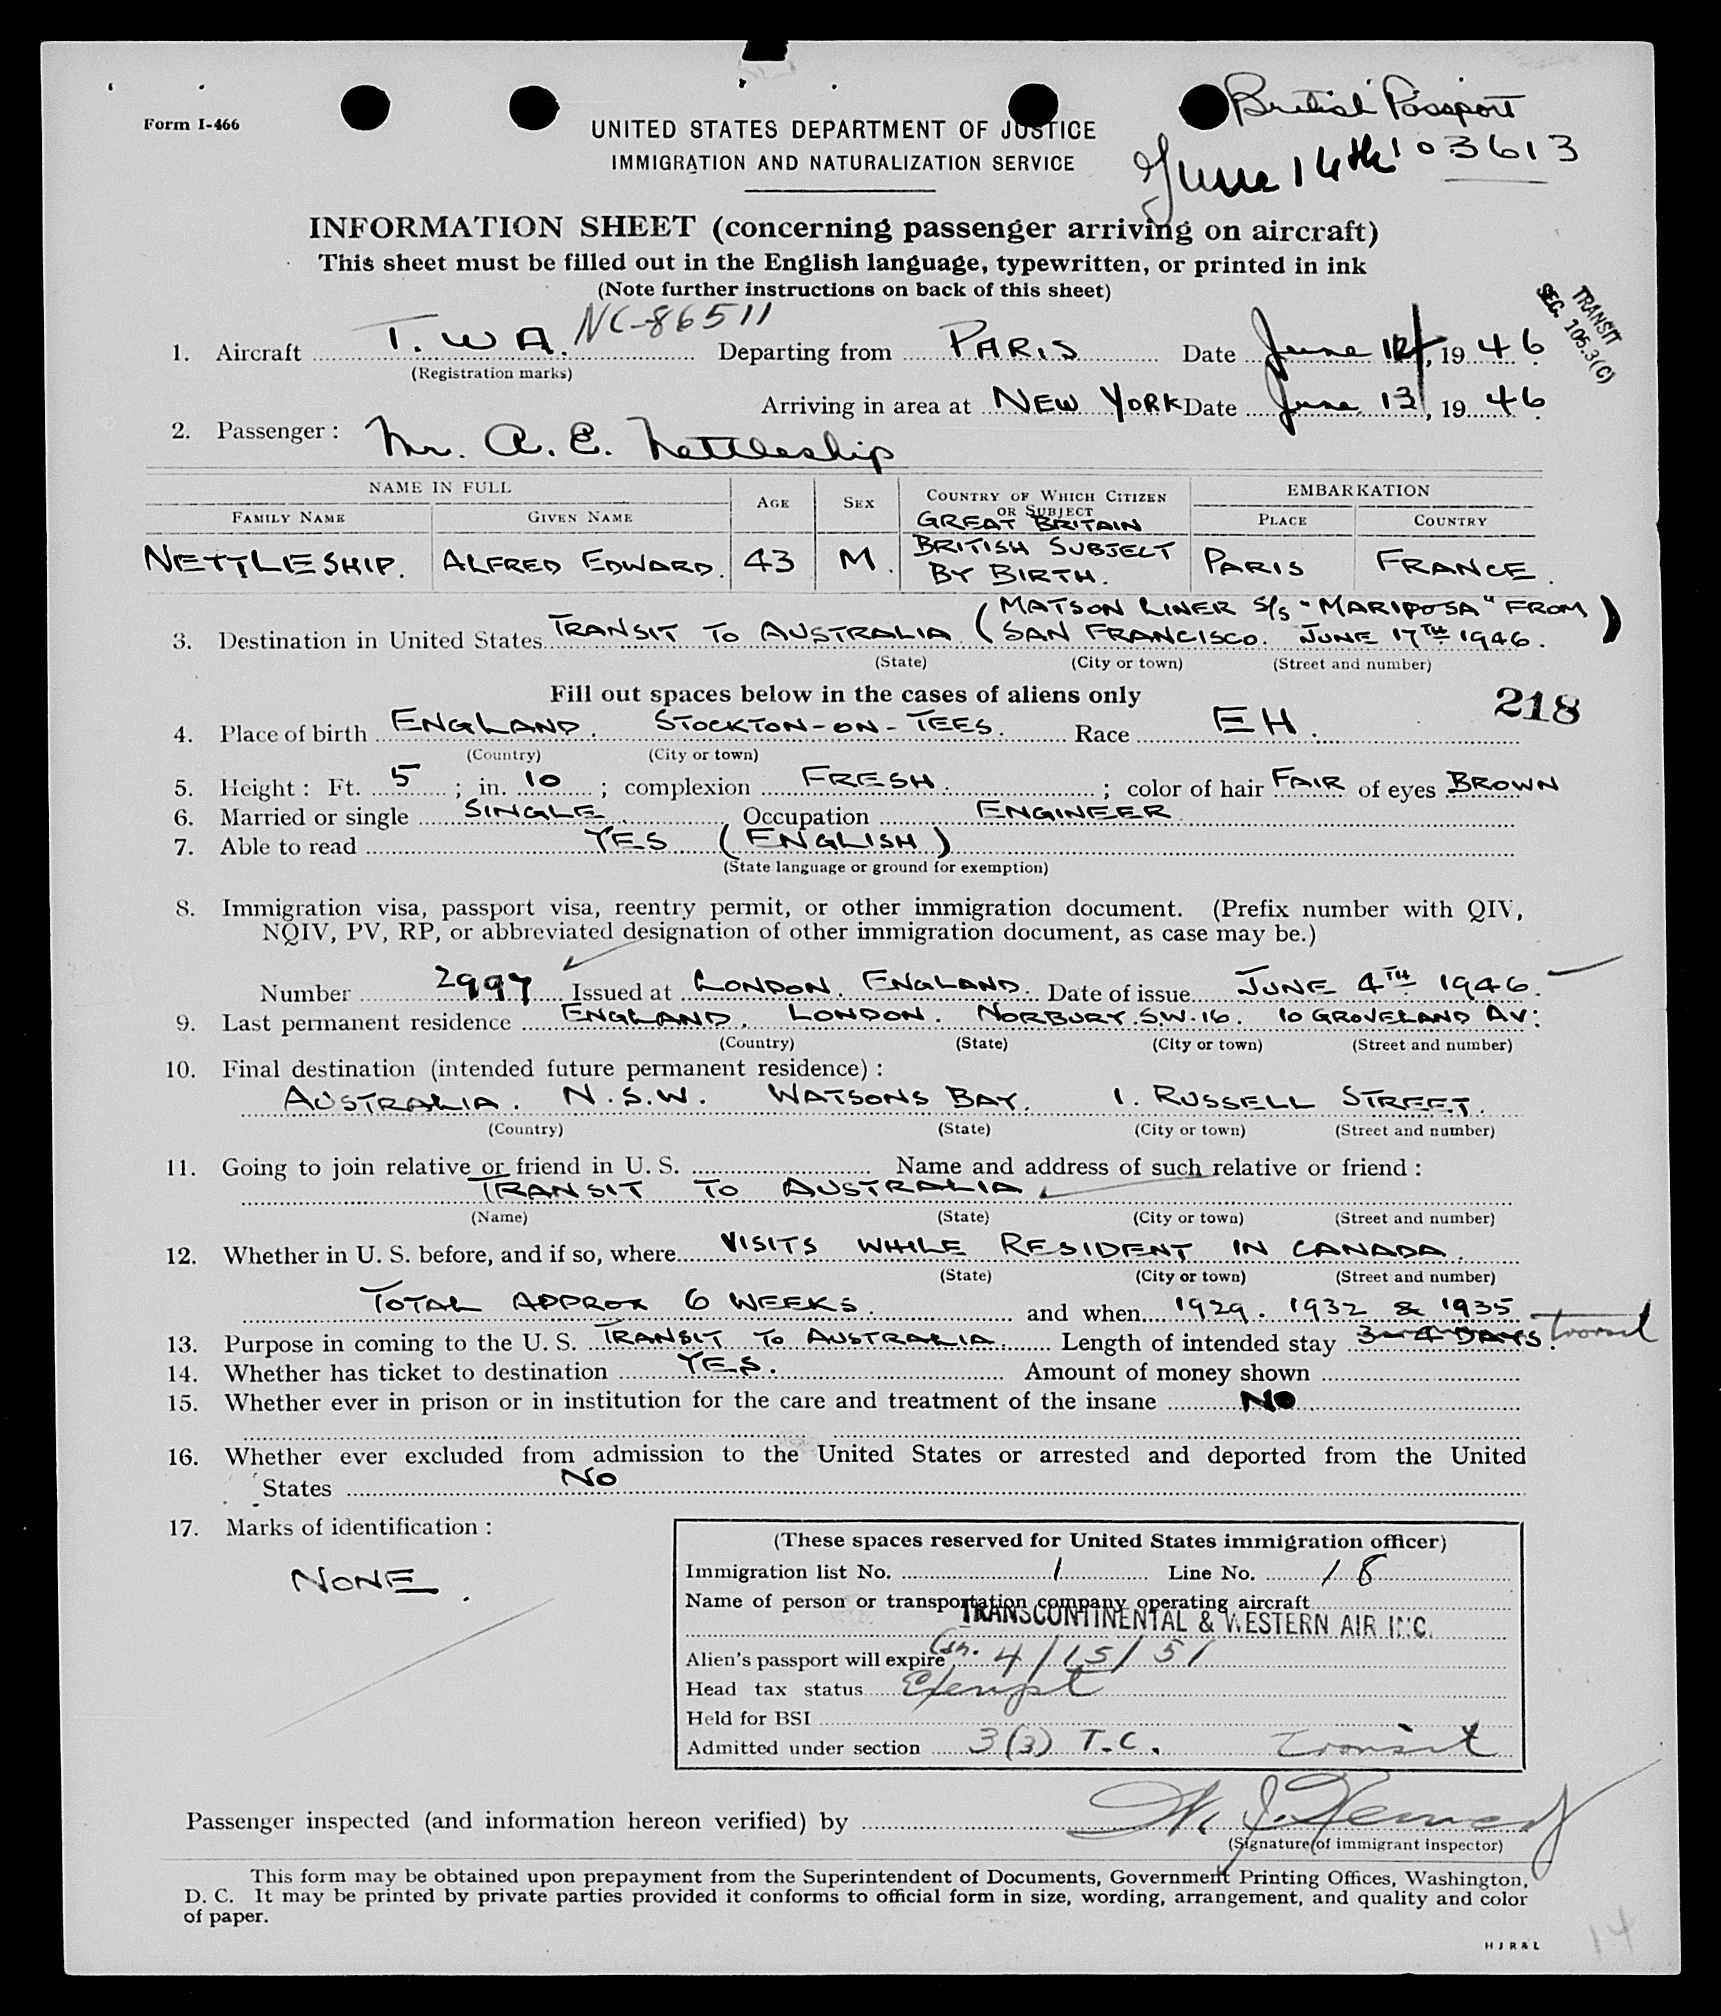 Form I-466
British Passport
UNITED STATES DEPARTMENT OF JUSTICE
IMMIGRATION AND NATURALIZATION SERVICE
103613
June 14th
INFORMATION SHEET (concerning passenger arriving on aircraft)
This sheet must be filled out in the English language, typewritten, or printed in ink
(Note further instructions on back of this sheet)
TRANSIT
SEC. 105.3(C)
1. Aircraft T.W.A. NC-86511 Departing from PARIS Date June 12, 1946
(Registration marks)
Arriving in area at NEW YORK Date June 13, 1946
2. Passenger: Mr. A. E. Nettleship
NAME IN FULL AGE SEX COUNTRY OF WHICH CITIZEN OR SUBJECT EMBARKATION
FAMILY NAME GIVEN NAME PLACE COUNTRY
GREAT BRITAIN
NETTLESHIP. ALFRED EDWARD. 43 M. BRITISH SUBJECT BY BIRTH. PARIS FRANCE.
(MATSON LINER S/S "MARIPOSA" FROM
3. Destination in United States TRANSIT TO AUSTRALIA (SAN FRANCISCO. JUNE 17TH 1946.)
(State) (City or town) (Street and number)
Fill out spaces below in the cases of aliens only
218
4. Place of birth ENGLAND. STOCKTON-ON-TEES. Race EH.
(Country) (City or town)
5. Height: Ft. 5; in. 10; complexion FRESH.; color of hair FAIR of eyes BROWN
6. Married or single SINGLE Occupation ENGINEER
7. Able to read YES (ENGLISH)
(State language or ground for exemption)
8. Immigration visa, passport visa, reentry permit, or other immigration document. (Prefix number with QIV,
NQIV, PV, RP, or abbreviated designation of other immigration document, as case may be.)
Number 2997 Issued at LONDON. ENGLAND. Date of issue JUNE 4TH 1946.
9. Last permanent residence ENGLAND. LONDON. NORBURY. S.W.16. 10 GROVELAND AV:
(Country) (State) (City or town) (Street and number)
10. Final destination (intended future permanent residence):
AUSTRALIA. N.S.W. WATSONS BAY. 1. RUSSELL STREET.
(Country) (State) (City or town) (Street and number)
11. Going to join relative or friend in U. S. Name and address of such relative or friend:
TRANSIT TO AUSTRALIA
(Name) (State) (City or town) (Street and number)
12. Whether in U. S. before, and if so, where VISITS WHILE RESIDENT IN CANADA.
(State) (City or town) (Street and number)
TOTAL APPROX 6 WEEKS. and when 1929. 1932 & 1935
13. Purpose in coming to the U. S. TRANSIT TO AUSTRALIA. Length of intended stay 3-4 DAYS. transit
14. Whether has ticket to destination YES. Amount of money shown
15. Whether ever in prison or in institution for the care and treatment of the insane NO
16. Whether ever excluded from admission to the United States or arrested and deported from the United
States NO
17. Marks of identification:
NONE.
(These spaces reserved for United States immigration officer)
Immigration list No. 1 Line No. 18
Name of person or transportation company operating aircraft
TRANSCONTINENTAL & WESTERN AIR INC.
Alien's passport will expire 4/15/51
Head tax status Exempt
Held for BSI
Admitted under section 3(3) T.C. transit
Passenger inspected (and information hereon verified) by
(Signature of immigrant inspector)
This form may be obtained upon prepayment from the Superintendent of Documents, Government Printing Offices, Washington,
D. C. It may be printed by private parties provided it conforms to official form in size, wording, arrangement, and quality and color
of paper.
H J R & L
14